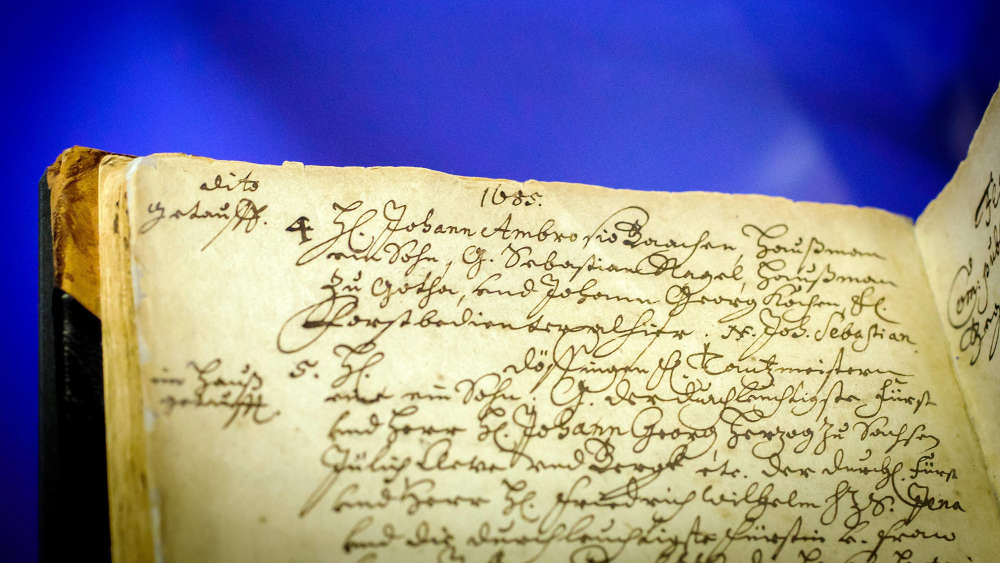 1685.
dito
getaufft.
4 H. Johann Ambrosio Baachen, Haußman
ein Sohn, G. Sebastian Nagel, Haußman
zu Gotha, und Johann Georg Kochen, fl.
Forstbedienter alhier. N. Joh. Sebastian.
5. H. Tantzmeistern
im Hauß
getaufft.
ein Sohn. G. der durchleuchtigste Fürst
und Herr H. Johann Georg Herzog zu Sachsen
Jülich Cleve und Bergk etc. der durchl. Fürst
und Herr H. Friedrich Wilhelm H. z. S. Jena
und die durchleuchtigste Fürstin Frau